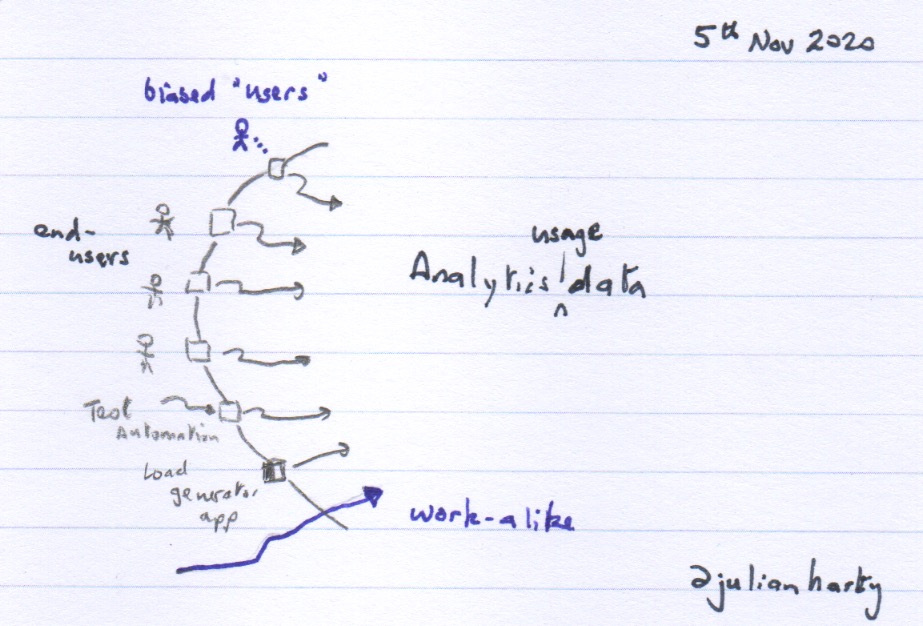 5th Nov 2020
biased "users"
end-
users
usage
Analytics data
Test
Automation
Load
generator
app
work-alike
@julianharty